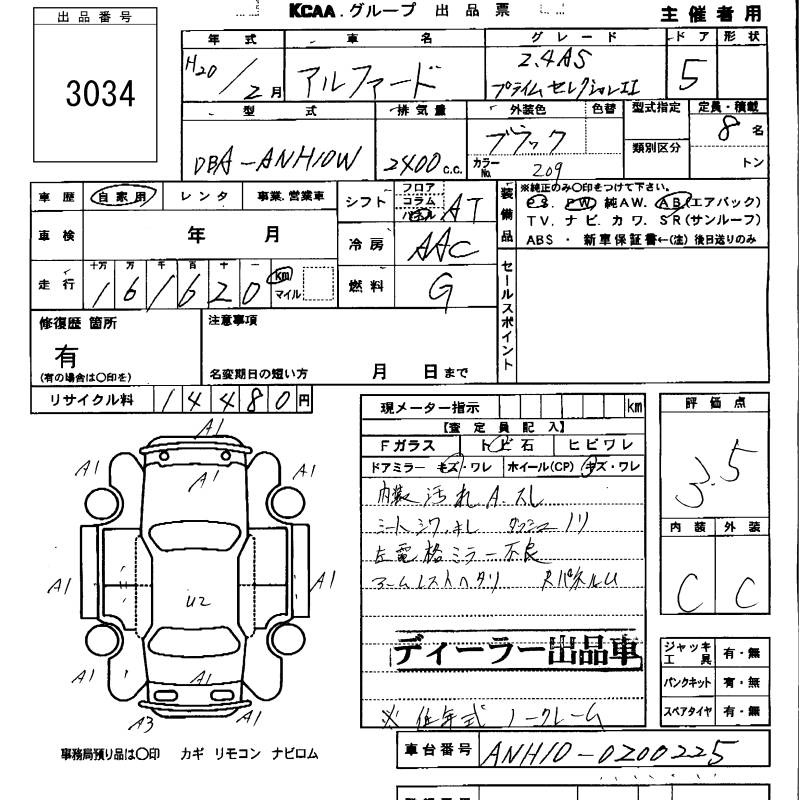 KCAA.グループ 出品票
主催者用
出品番号
3034
年式 車名 グレード ドア 形状
H20/2月 アルファード 2.4AS プライムセレクションII 5
型式 排気量 外装色 色替 型式指定 定員・積載
類別区分
DBA-ANH10W 2400c.c. ブラック カラーNo. 209 8名
トン
車歴 自家用 レンタ 事業.営業車
車検 年 月
走行 十万 万 千 百 十 一
161620 km マイル
シフト フロア コラム パネル AT
冷房 AAC
燃料 G
装備品
※純正のみ〇印をつけて下さい。
P.S. PW 純AW. AB(エアバック)
TV. ナビ. カワ. SR(サンルーフ)
ABS ・ 新車保証書←(注) 後日送りのみ
セールスポイント
修復歴 箇所
有
(有の場合は〇印を)
注意事項
名変期日の短い方 月 日まで
リサイクル料 14480円
現メーター指示 km
【査定員記入】
Fガラス ト ビ 石 ヒビワレ
ドアミラー キズ・ワレ ホイール(CP) キズ・ワレ
内装汚れ A.スレ
シートシワ.キレ ダッシュノリ
左電格ミラー不良
アームレストヘタリ
ディーラー出品車
※低年式ノークレーム
評価点
3.5
内装 外装
C C
ジャッキ工具 有・無
パンクキット 有・無
スペアタイヤ 有・無
車台番号 ANH10-0200225
A1
A1 A1 A1
A1 U2 A1
A1 A1 A1
A3 A1
事務局預り品は〇印 カギ リモコン ナビロム